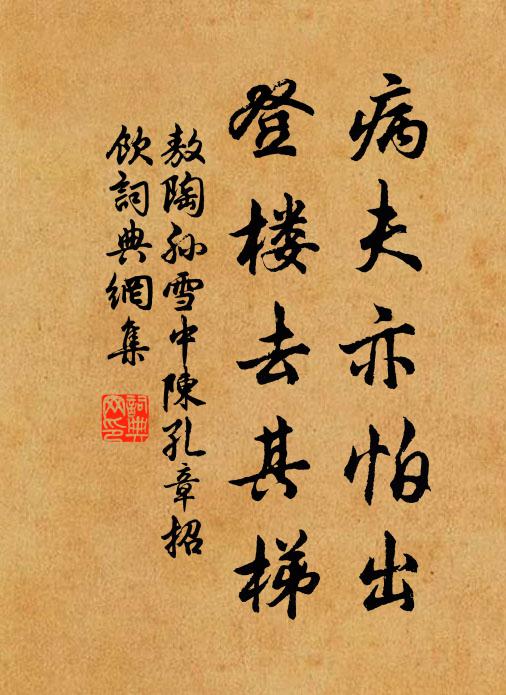 病夫亦怕出
登楼去其梯
敖陶孙雪中陳孔章招
飲詞典網集
詞典
网印